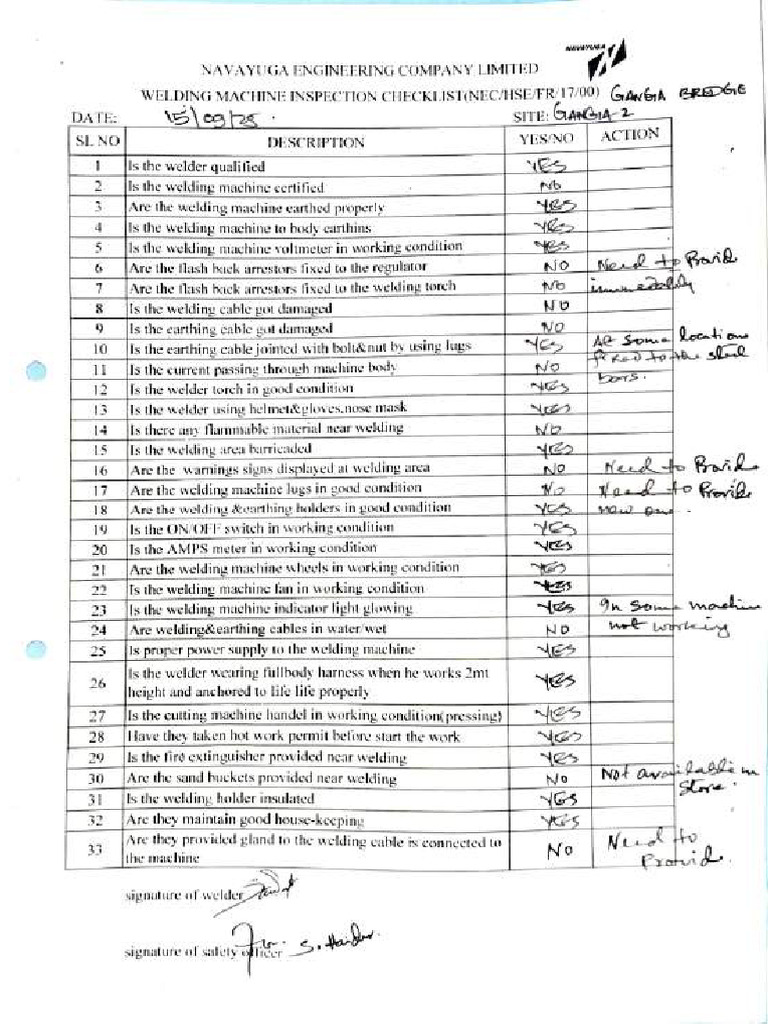 NAVAYUGA
NAVAYUGA ENGINEERING COMPANY LIMITED
WELDING MACHINE INSPECTION CHECKLIST(NEC/HSE/FR/17/00) GANGA BREDGE
DATE: 15/09/25. SITE: GANGA-2
SL NO DESCRIPTION YES/NO ACTION
1 Is the welder qualified YES
2 Is the welding machine certified NO
3 Are the welding machine earthed properly YES
4 Is the welding machine to body earthins YES
5 Is the welding machine voltmeter in working condition YES
6 Are the flash back arrestors fixed to the regulator NO Need to Provide
7 Are the flash back arrestors fixed to the welding torch NO immediately
8 Is the welding cable got damaged NO
9 Is the earthing cable got damaged NO
10 Is the earthing cable jointed with bolt&nut by using lugs YES At some locations
11 Is the current passing through machine body NO fixed to the steel
12 Is the welder torch in good condition YES bars.
13 Is the welder using helmet&gloves,nose mask YES
14 Is there any flammable material near welding NO
15 Is the welding area barricaded YES
16 Are the warnings signs displayed at welding area NO Need to Provide
17 Are the welding machine lugs in good condition NO Need to Provide
18 Are the welding &earthing holders in good condition YES new one.
19 Is the ON/OFF switch in working condition YES
20 Is the AMPS meter in working condition YES
21 Are the welding machine wheels in working condition YES
22 Is the welding machine fan in working condition YES
23 Is the welding machine indicator light glowing YES In some machine
24 Are welding&earthing cables in water/wet NO not working
25 Is proper power supply to the welding machine YES
26 Is the welder wearing fullbody harness when he works 2mt YES
height and anchored to life life properly
27 Is the cutting machine handel in working condition(pressing) YES
28 Have they taken hot work permit before start the work YES
29 Is the fire extinguisher provided near welding YES
30 Are the sand buckets provided near welding NO Not available in
31 Is the welding holder insulated YES Store.
32 Are they maintain good house-keeping YES
33 Are they provided gland to the welding cable is connected to NO Need to
the machine Provide.
signature of welder
signature of safety officer S. Haider.